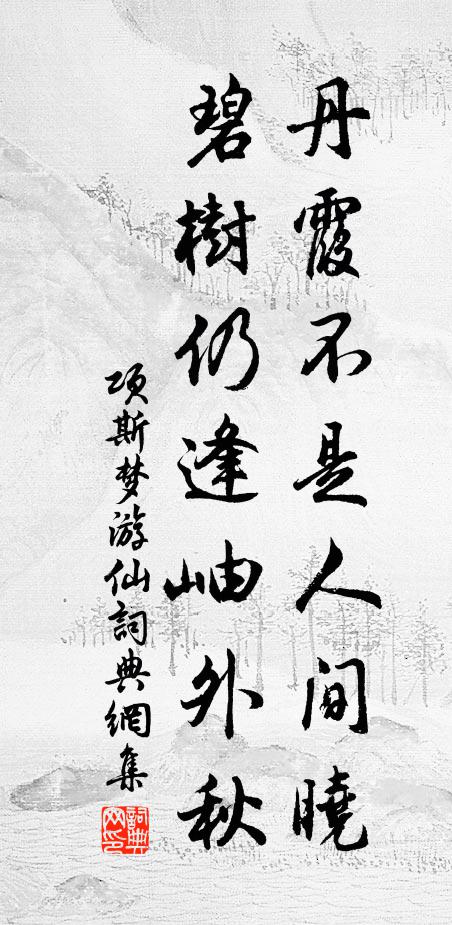 丹霞不是人間曉
碧樹仍逢岫外秋
项斯梦游仙詞典網集
詞典網印